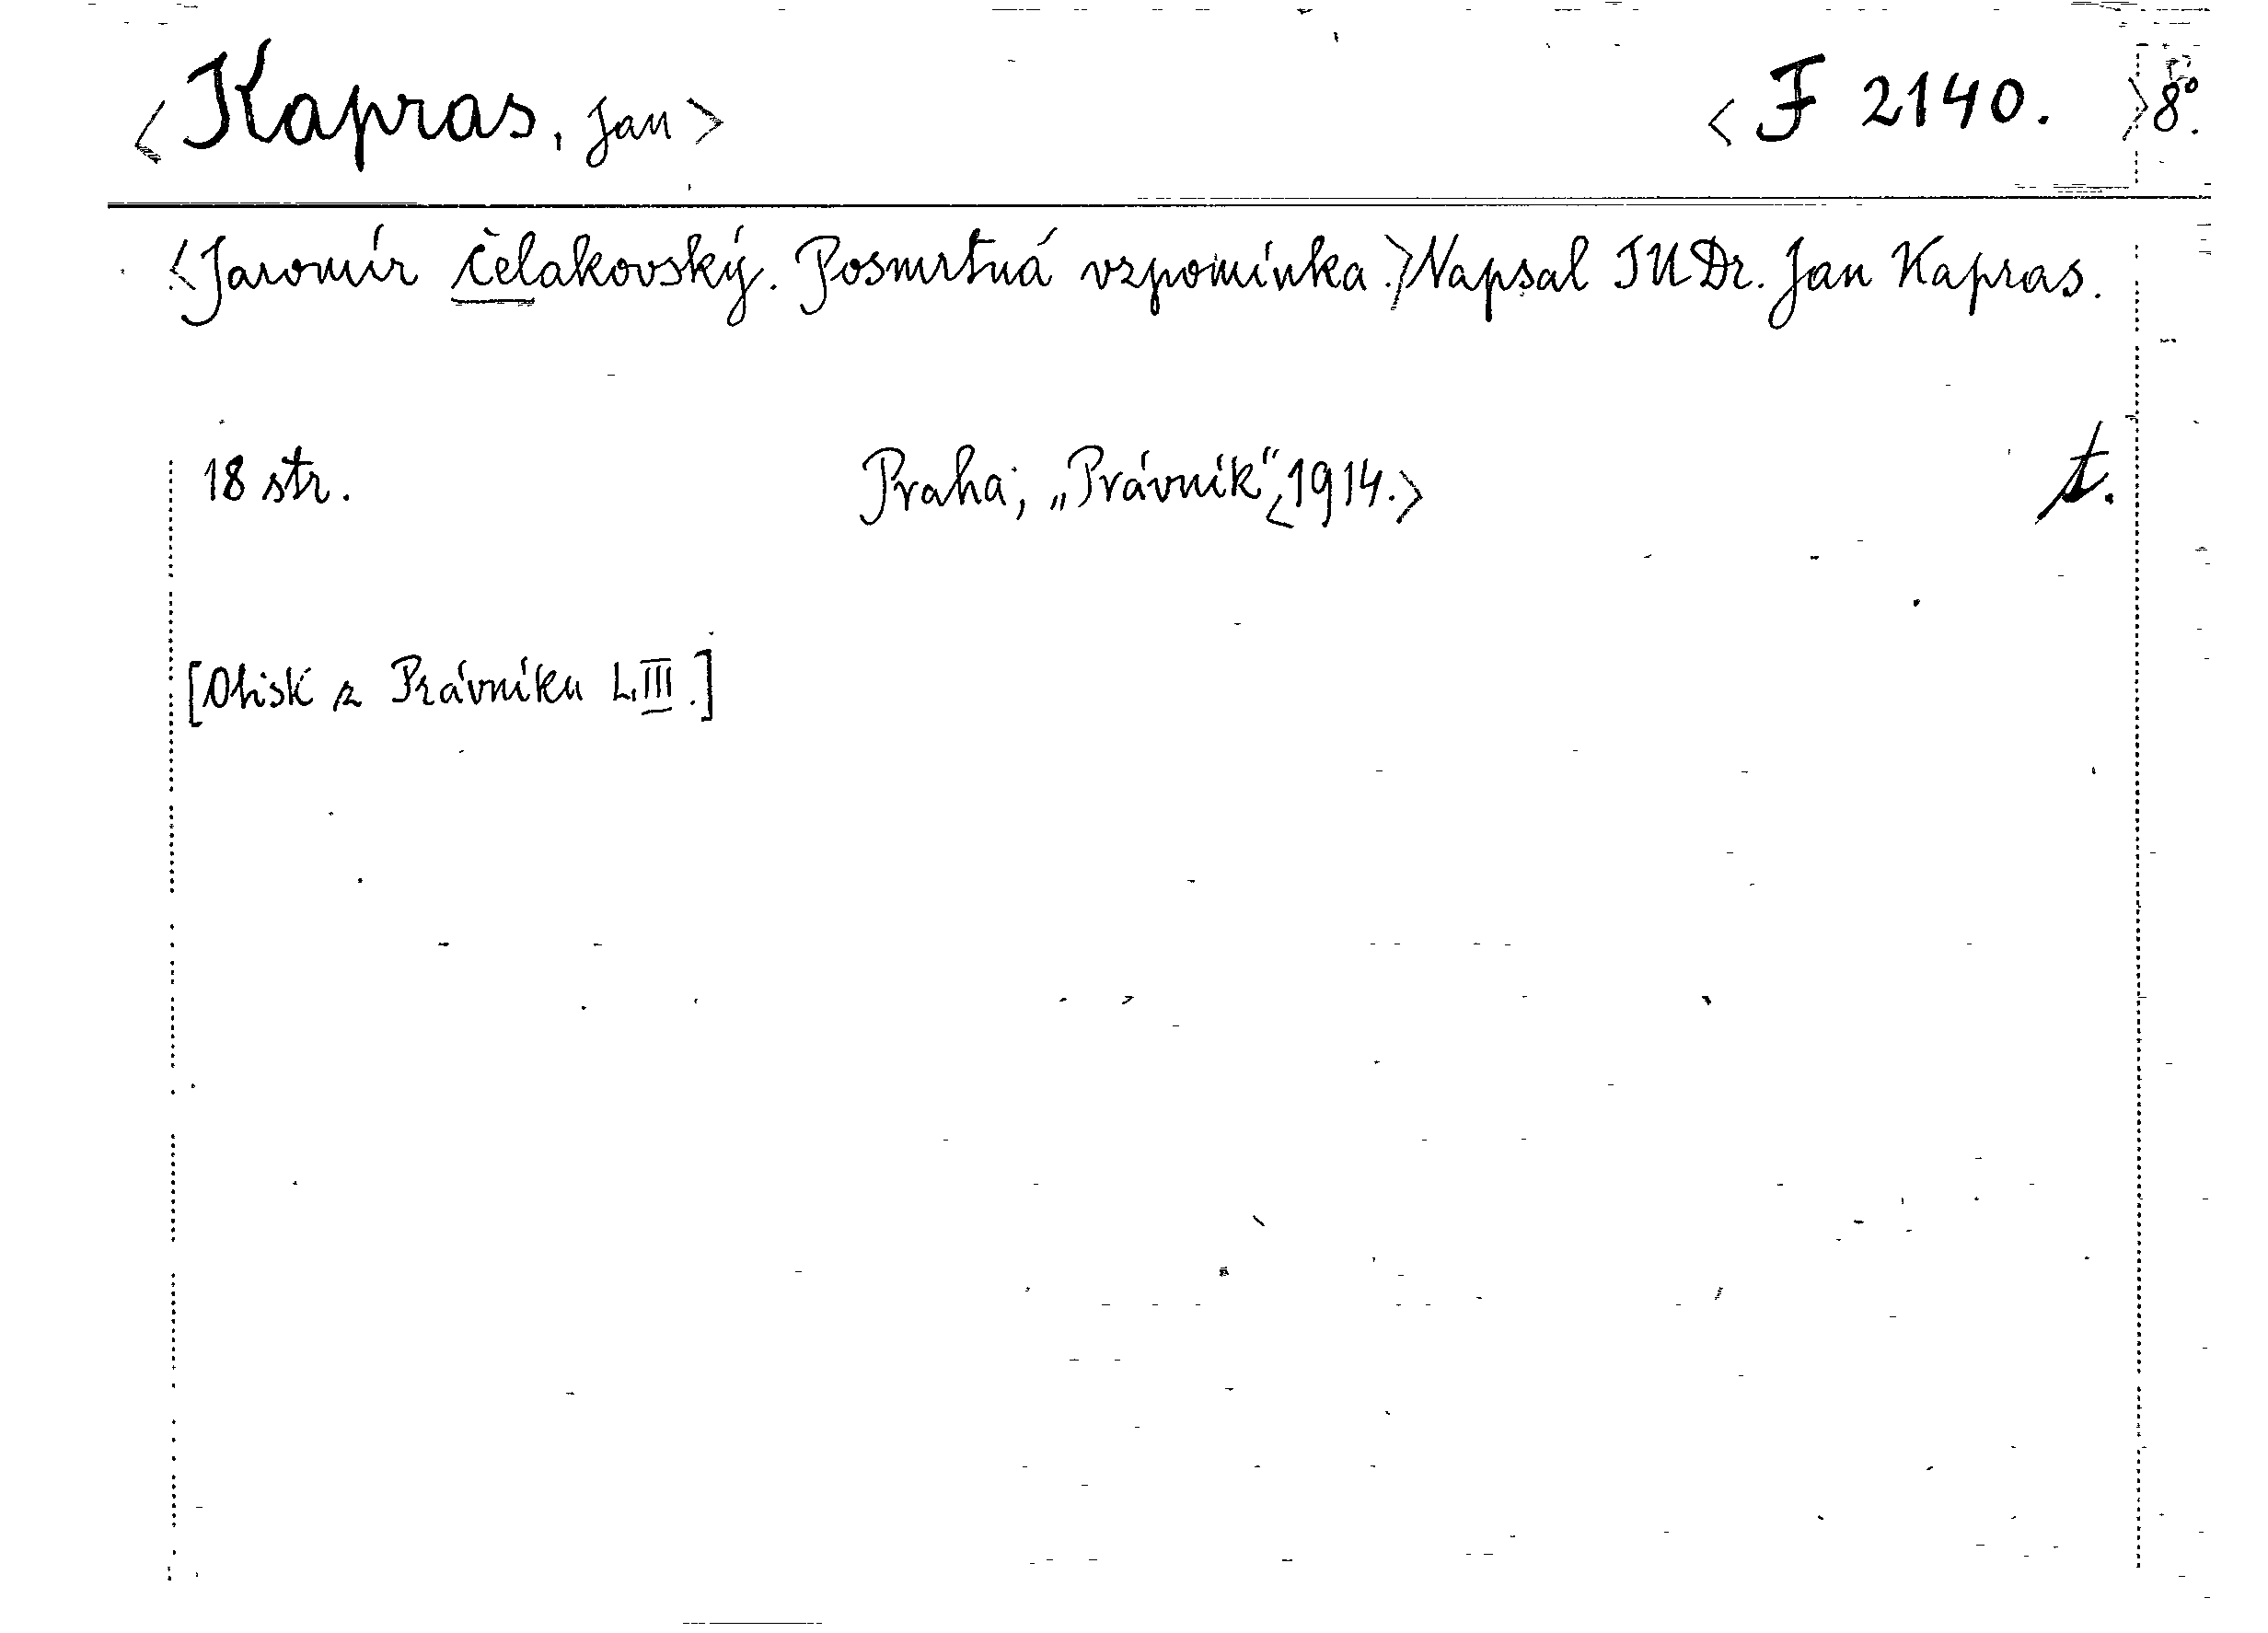 <Kapras, Jan> <F 2140. >8°.
<Jaromír Čelakovský. Posmrtná vzpomínka.>Napsal JUDr. Jan Kapras.
18 str. Praha; „Právník“<1914.> t.
[Otisk z Právníku LIII.]